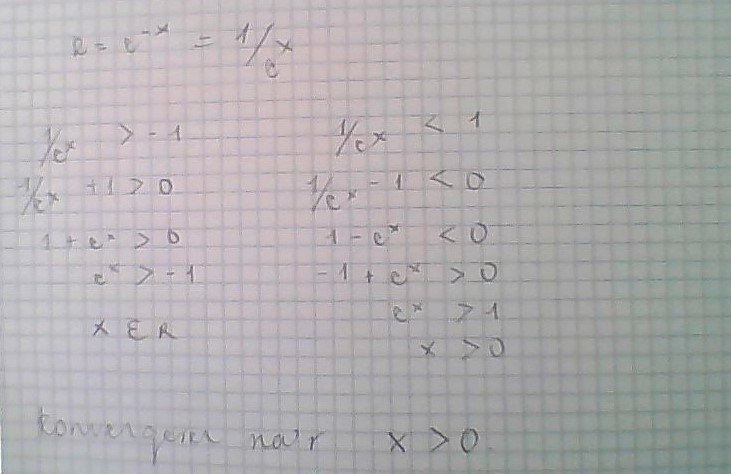 k = e^-x = 1/e^x
1/e^x > -1
1/e^x + 1 > 0
1 + e^x > 0
e^x > -1
x ∈ R
1/e^x < 1
1/e^x - 1 < 0
1 - e^x < 0
-1 + e^x > 0
e^x > 1
x > 0
konvergerer når x > 0.